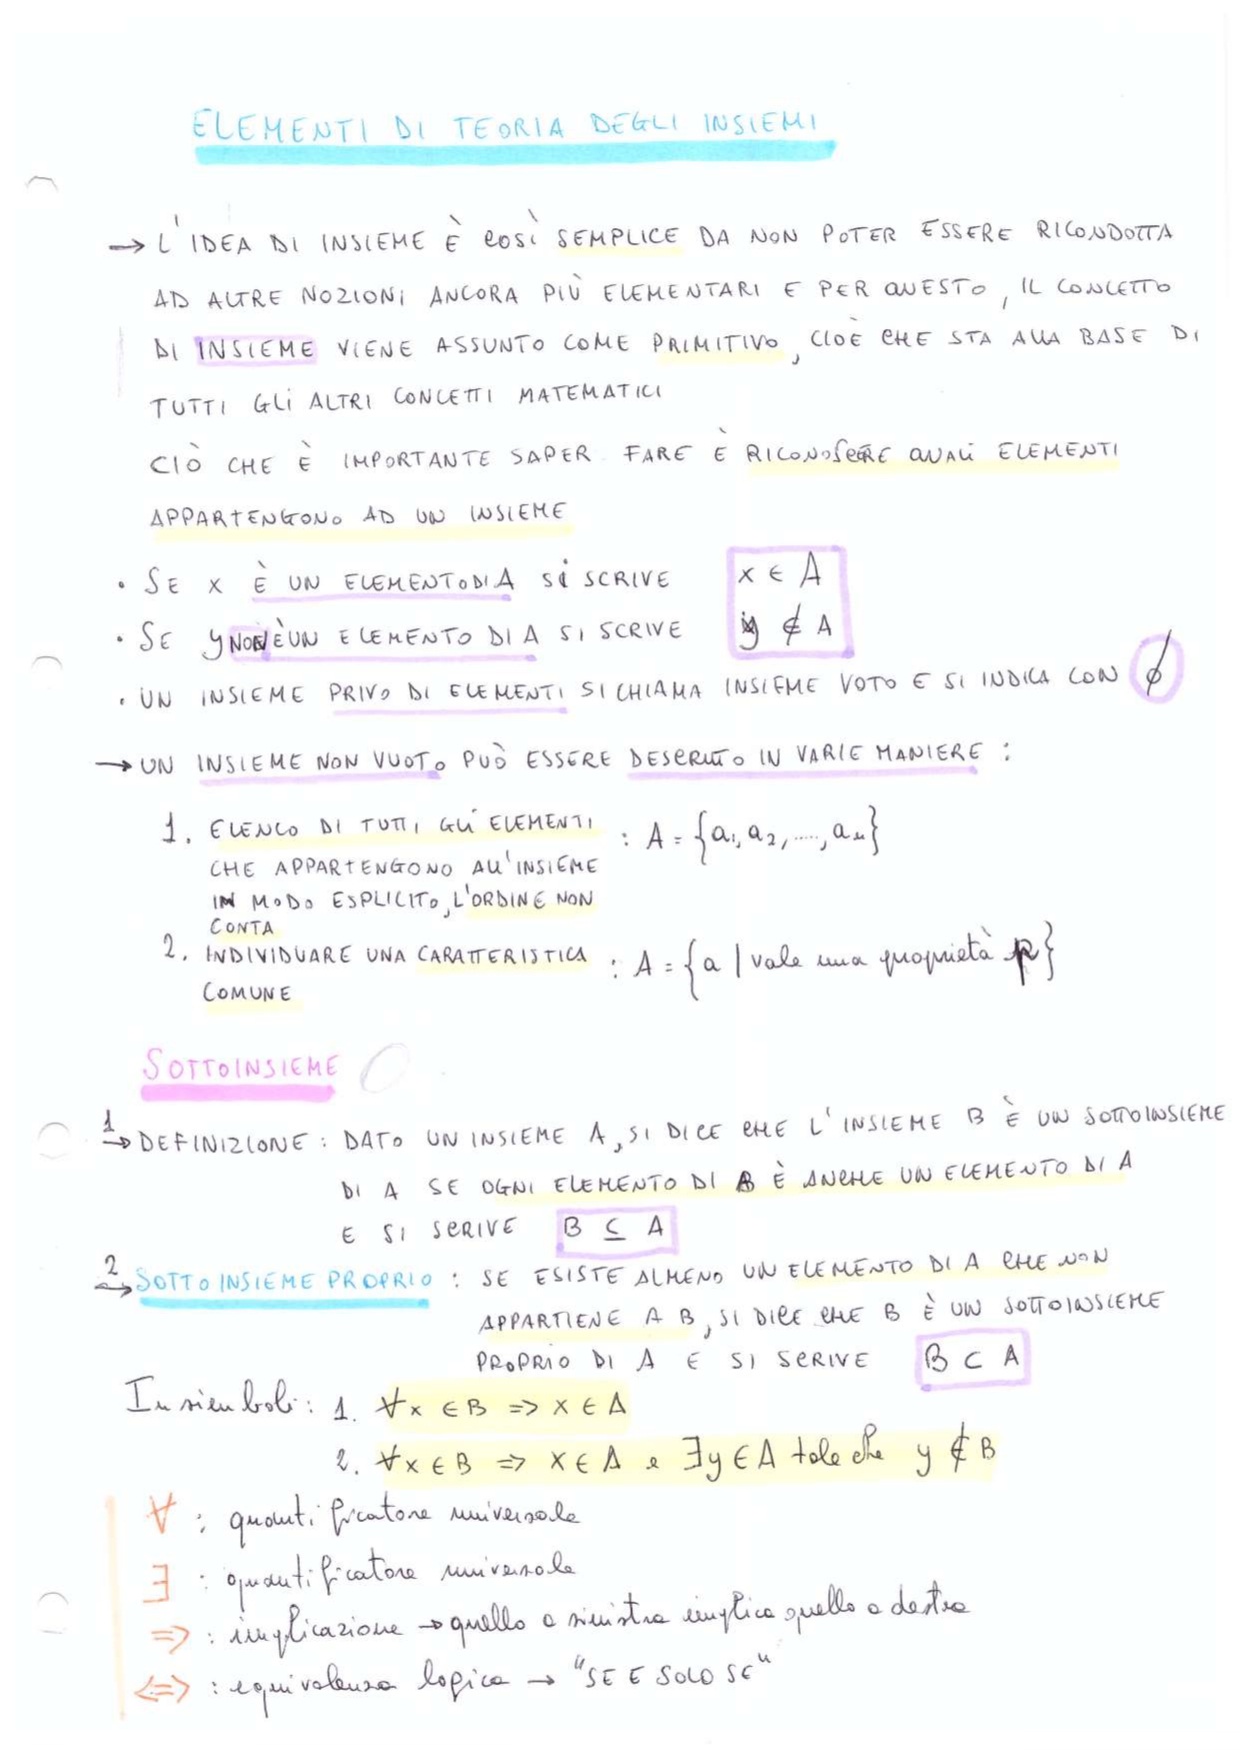 ELEMENTI DI TEORIA DEGLI INSIEMI
→ L'IDEA DI INSIEME È COSÌ SEMPLICE DA NON POTER ESSERE RICONDOTTA
AD ALTRE NOZIONI ANCORA PIÙ ELEMENTARI E PER QUESTO, IL CONCETTO
DI INSIEME VIENE ASSUNTO COME PRIMITIVO, CIOÈ CHE STA ALLA BASE DI
TUTTI GLI ALTRI CONCETTI MATEMATICI
CIÒ CHE È IMPORTANTE SAPER FARE È RICONOSCERE QUALI ELEMENTI
APPARTENGONO AD UN INSIEME
• SE X È UN ELEMENTO DI A SI SCRIVE x ∈ A
• SE y NON È UN ELEMENTO DI A SI SCRIVE y ∉ A
• UN INSIEME PRIVO DI ELEMENTI SI CHIAMA INSIEME VOTO E SI INDICA CON ∅
→ UN INSIEME NON VUOTO PUÒ ESSERE DESCRITTO IN VARIE MANIERE :
1. ELENCO DI TUTTI GLI ELEMENTI : A = {a₁, a₂, ....., aₙ}
CHE APPARTENGONO ALL'INSIEME
IN MODO ESPLICITO, L'ORDINE NON
CONTA
2. INDIVIDUARE UNA CARATTERISTICA : A = {a | vale una proprietà p}
COMUNE
SOTTOINSIEME
1 → DEFINIZIONE : DATO UN INSIEME A, SI DICE CHE L'INSIEME B È UN SOTTOINSIEME
DI A SE OGNI ELEMENTO DI B È ANCHE UN ELEMENTO DI A
E SI SCRIVE B ⊆ A
2 → SOTTOINSIEME PROPRIO : SE ESISTE ALMENO UN ELEMENTO DI A CHE NON
APPARTIENE A B, SI DICE CHE B È UN SOTTOINSIEME
PROPRIO DI A E SI SCRIVE B ⊂ A
In simboli : 1. ∀x ∈ B => x ∈ A
2. ∀x ∈ B => x ∈ A e ∃y ∈ A tale che y ∉ B
∀ : quantificatore universale
∃ : quantificatore universale
=> : implicazione → quello a sinistra implica quello a destra
<=> : equivalenza logica → "SE E SOLO SE"